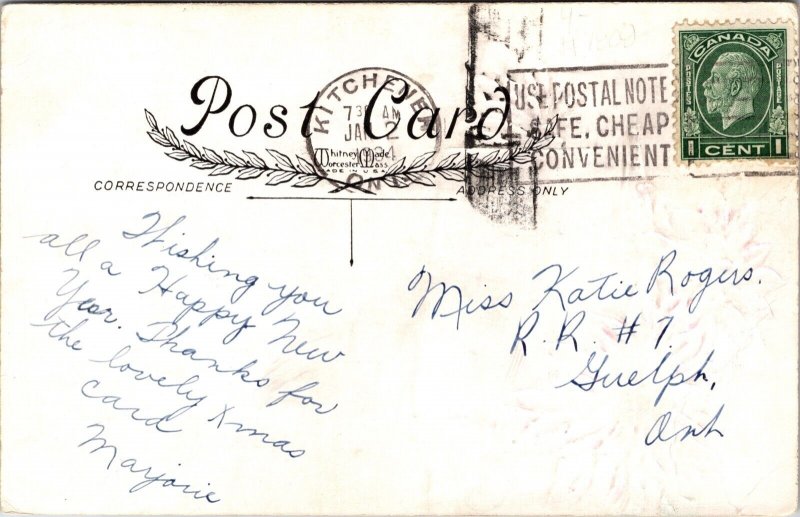 Post Card
KITCHENER
730 AM
JAN 2
ONT.
Whitney Made
Worcester, Mass
MADE IN U.S.A.
USE POSTAL NOTE
SAFE, CHEAP
CONVENIENT
CANADA
POSTES
POSTAGE
1 CENT 1
CORRESPONDENCE
ADDRESS ONLY
Wishing you
all a Happy New
Year. Thanks for
the lovely Xmas
card
Marjorie
Miss Katie Rogers.
R. R. #7.
Guelph,
Ont